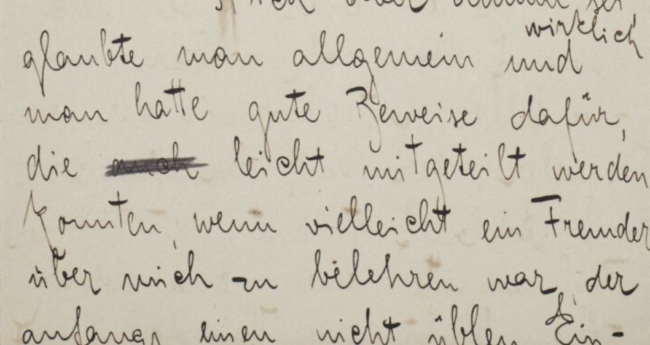 wirklich
glaubte man allgemein und
man hatte gute Beweise dafür,
die auch leicht mitgeteilt werden
konnten, wenn vielleicht ein Fremder
über mich zu belehren war, der
anfangs einen nicht üblen Ein-